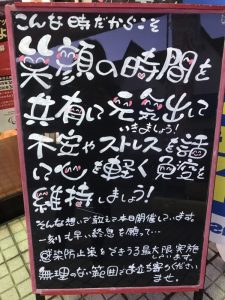 こんな時だからこそ
笑顔の時間を
共有して元気出して
いきましょう!
不安やストレスを話し
て心を軽く免疫を
維持しましょう!
そんな想いで敢えて本日開催しています。
一刻も早い終息を願って…
感染防止策をできうる最大限実施
しています。
無理のない範囲でお立ち寄りください
ませ。